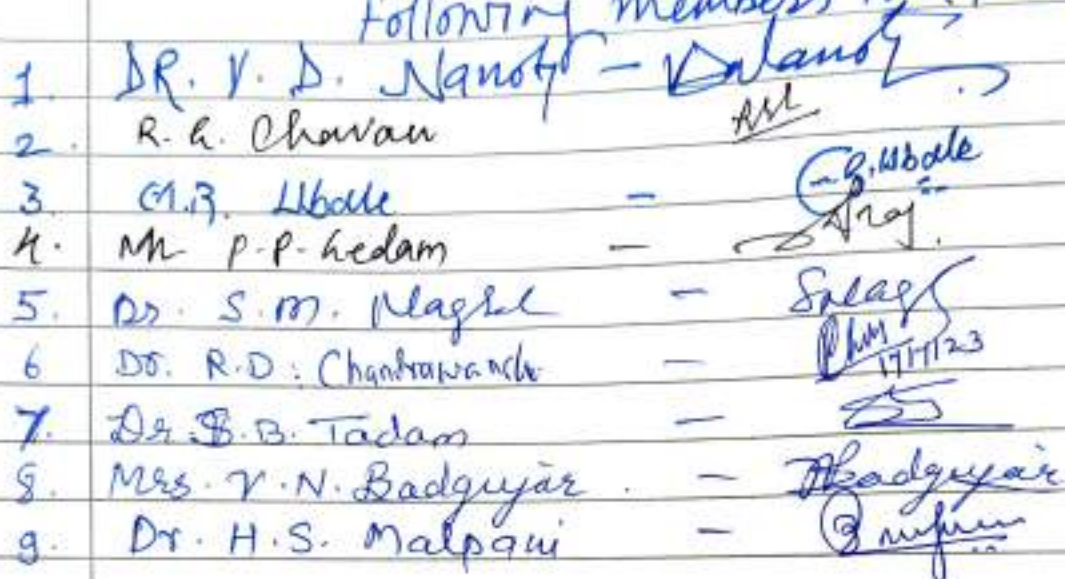 Following Members
1. DR. V. D. Nanoty -
2. R. G. Chavan
3. G.B. Ubale - G. Ubale
4. Mr P.P. Gedam -
5. Dr. S.M. -
6 Dr. R.D. - 17/7/23
7. Dr. S.B. Tadam -
8. Mrs. V.N. Badgujar. - Badgujar
9. Dr. H.S. Malpani -